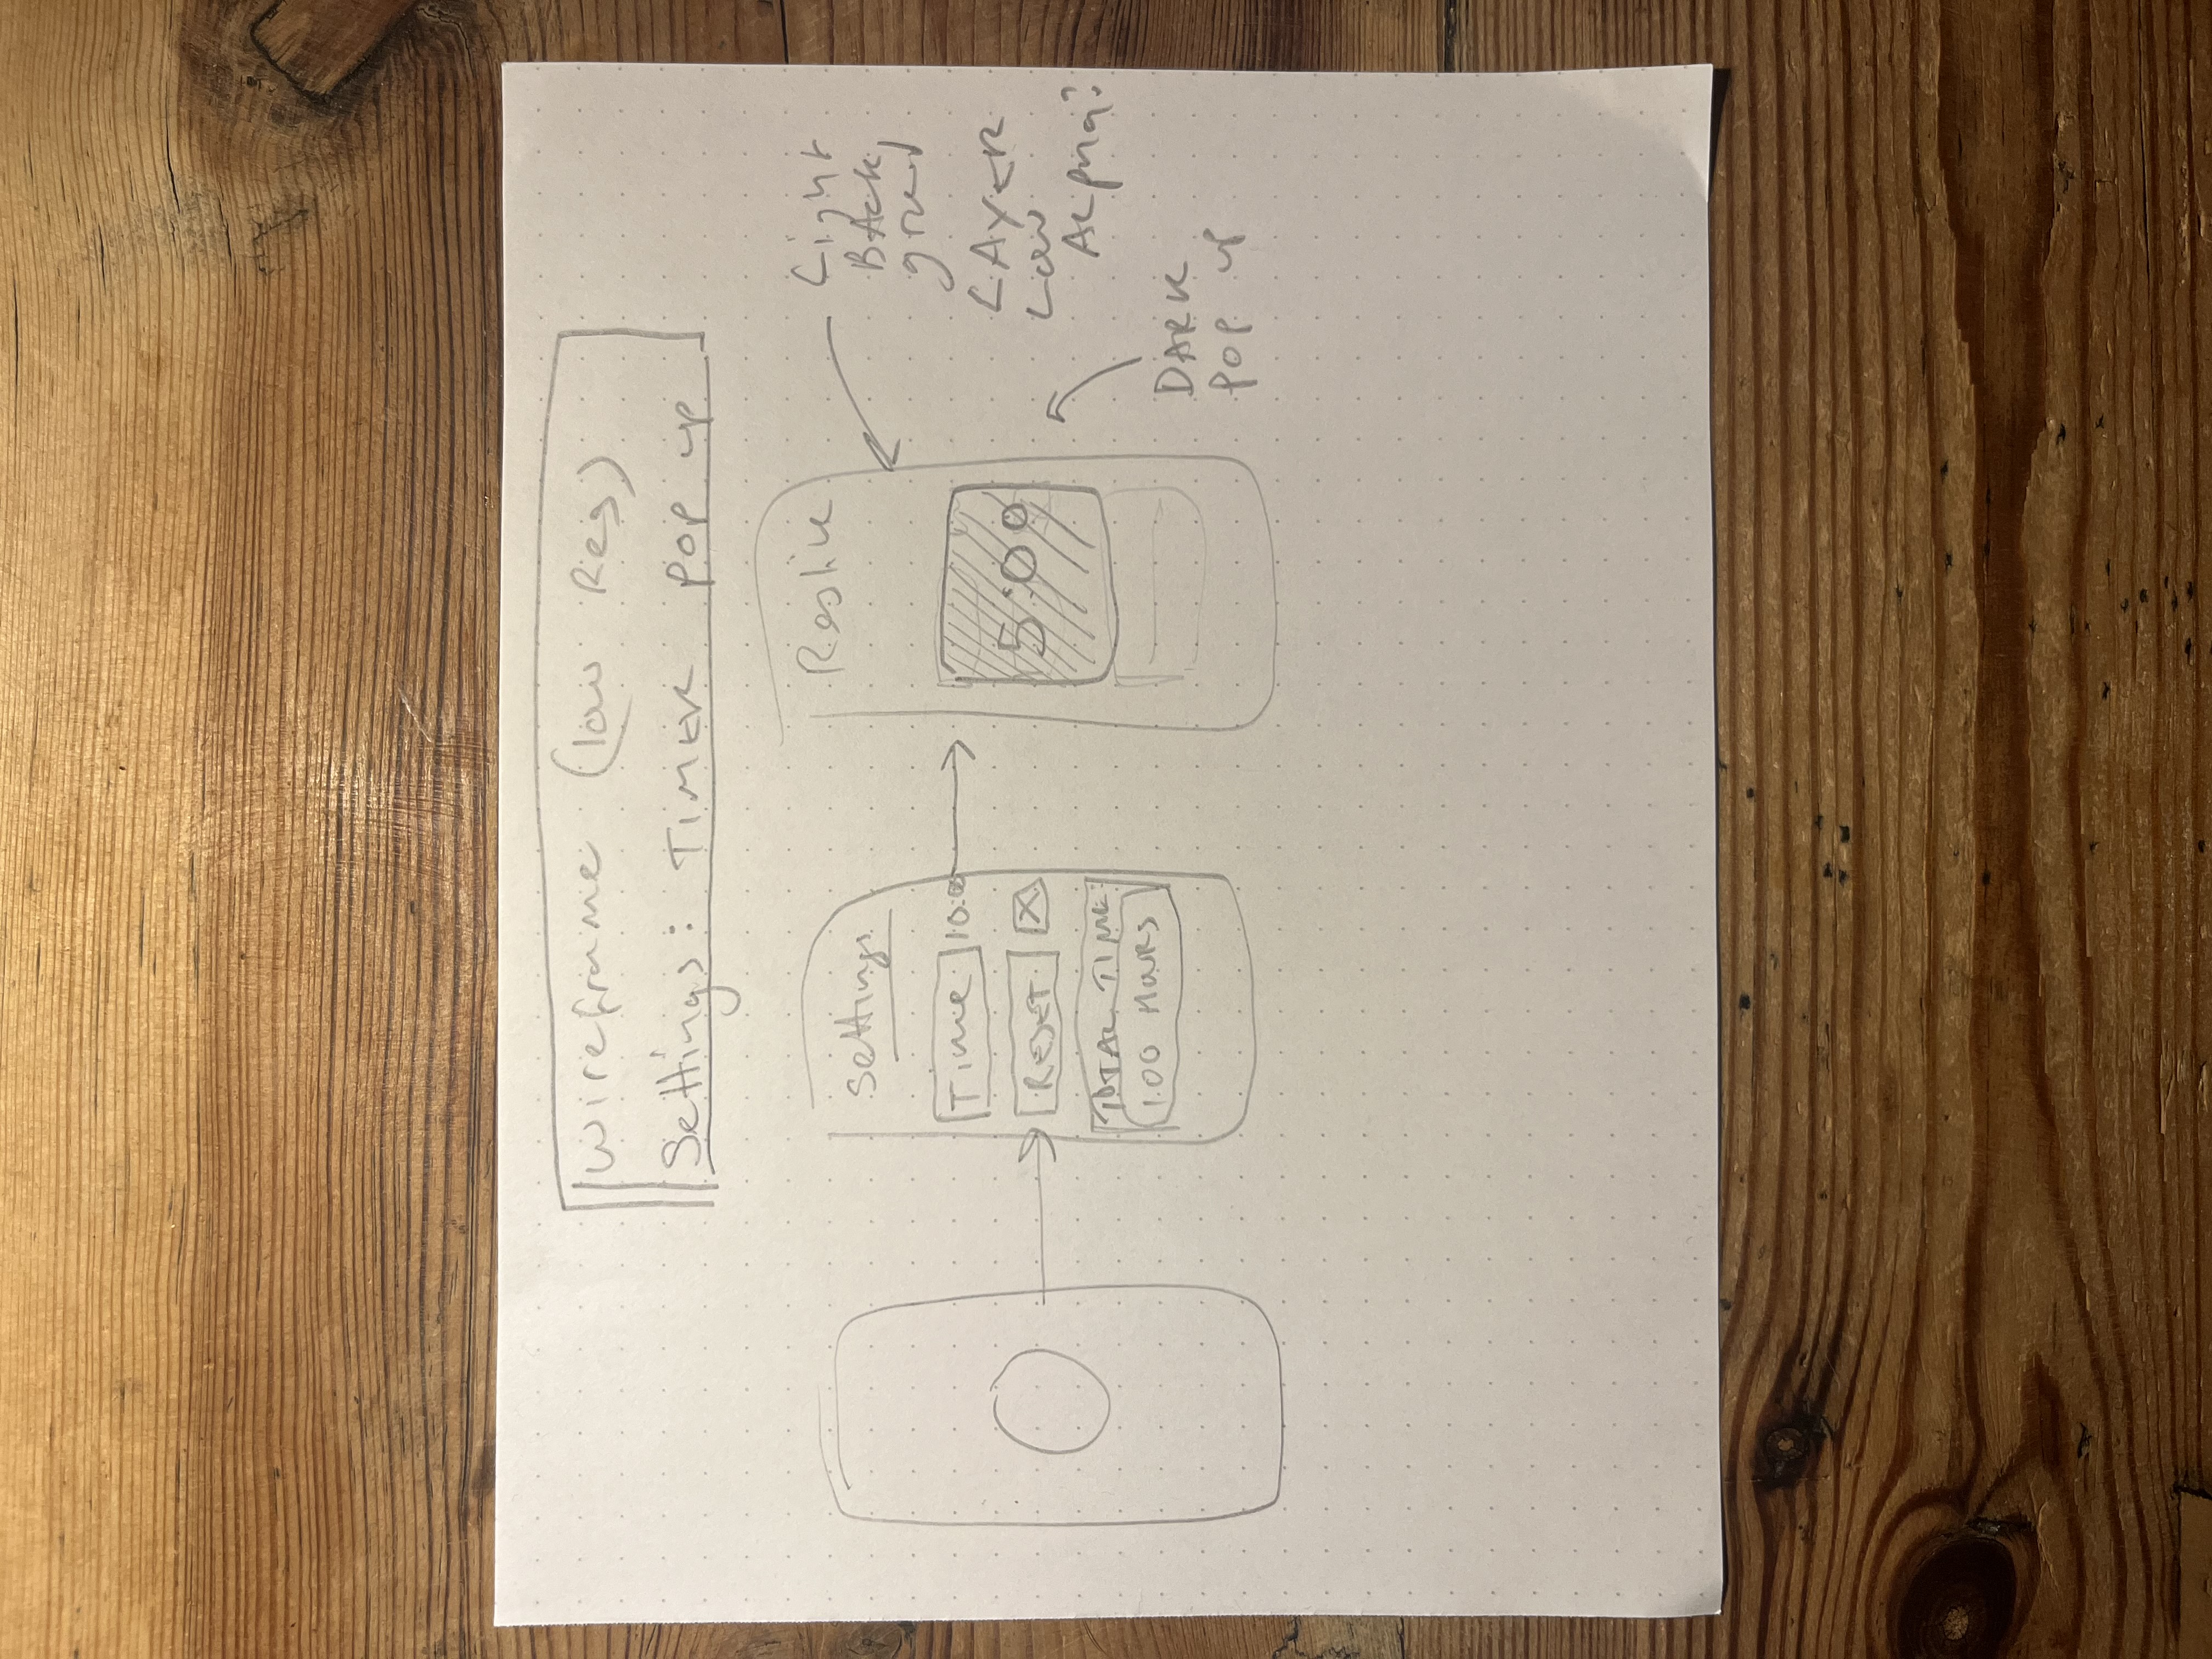 Wireframe (low Res)
Settings: TIMER POP UP
Settings
Time 10:00
RESET X
TOTAL TIME:
100 HOURS
5:00
Light
BACK
ground
LAYER
Low
Alpha?
DARK
POP UP